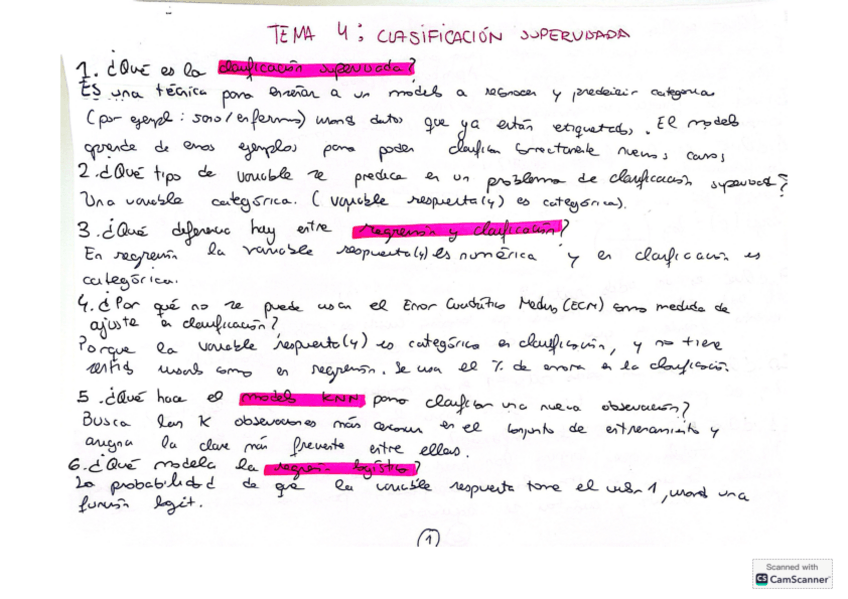 TEMA 4: CLASIFICACIÓN SUPERVISADA
1. ¿Qué es la clasificación supervisada?
Es una técnica para enseñar a un modelo a reconocer y predecir categorías
(por ejempl: sano/enfermo) usando datos que ya están etiquetados. El modelo
aprende de esos ejemplos para poder clasificar correctamente nuevos casos
2. ¿Qué tipo de variable se predice en un problema de clasificación supervisada?
Una variable categórica. (variable respuesta(y) es categórica).
3. ¿Qué diferencia hay entre regresión y clasificación?
En regresión la variable respuesta(y) es numérica y en clasificación es
categórica.
4. ¿Por qué no se puede usar el Error Cuadrático Medio (ECM) como medida de
ajuste en clasificación?
Porque la variable respuesta(y) es categórica en clasificación, y no tiene
sentido usarlo como en regresión. Se usa el % de error en la clasificación.
5. ¿Qué hace el modelo KNN para clasificar una nueva observación?
Busca las K observaciones más cercanas en el conjunto de entrenamiento y
asigna la clase más frecuente entre ellas.
6. ¿Qué modela la regresión logística?
La probabilidad de que la variable respuesta tome el valor 1, usando una
función logit.
1
Scanned with
CS CamScanner